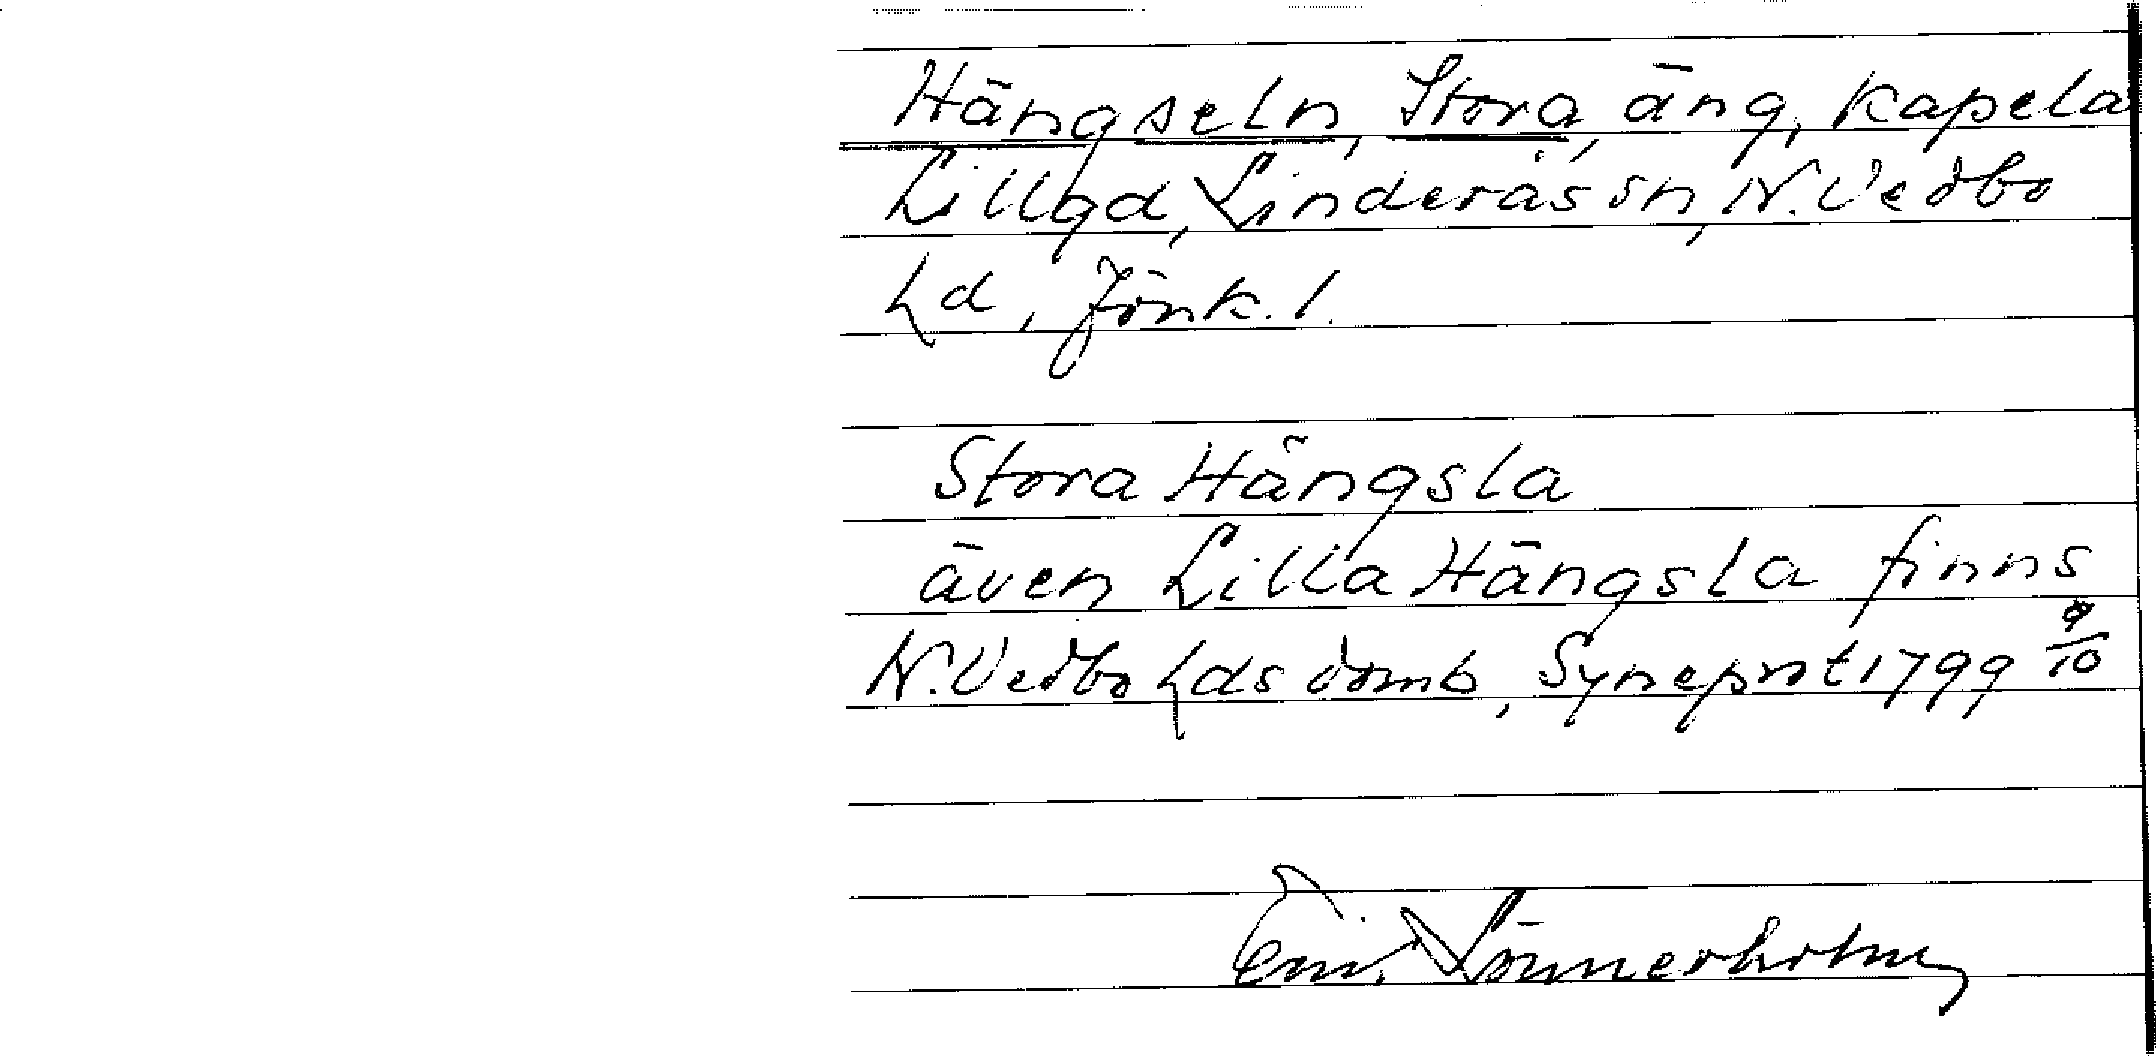 Hängseln, Stora, äng, Kapela
Lillgd, Linderås sn, N. Vedbo
hd, Jönk. l.
Stora Hängsla
även Lilla Hängsla finns
N. Vedbo hds domb, Syneprot 1799 9/10
Em. Lönnerholm